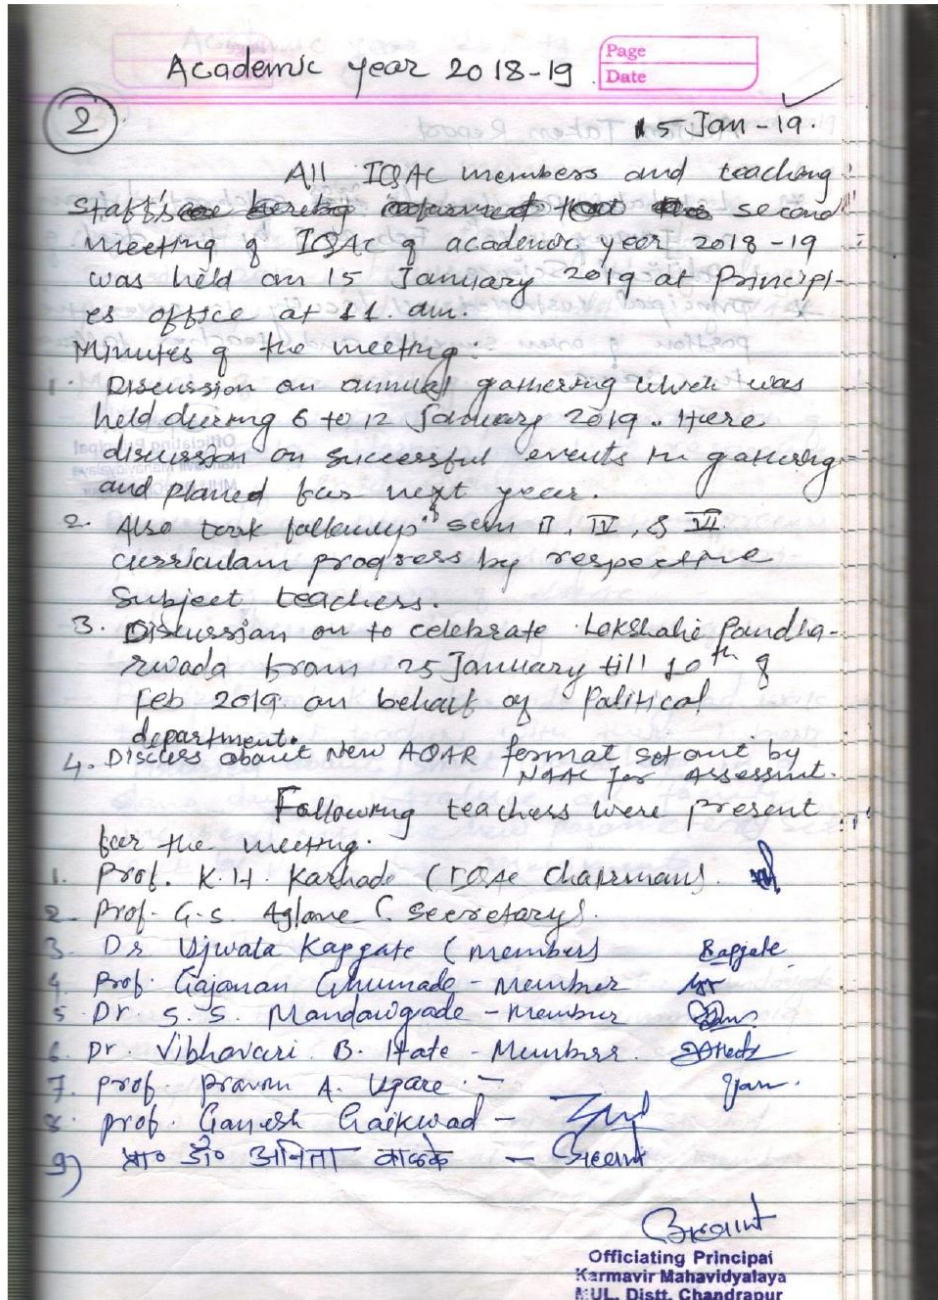 Academic year 2018-19
Page
Date
2
15 Jan-19.
All IQAC members and teaching
staff's second
meeting of IQAC of academic year 2018-19
was held on 15 January 2019 at principl-
es office at 11. am.
Minutes of the meeting:
1. Discussion on annual gathering which was
held during 6 to 12 January 2019. Here
discussion on successful events in gathering
and planed for next year.
2. Also took followup's sem II, IV, & VI
curriculam progress by respective
subject teachers.
3. Discussion on to celebrate Lokshahi Pandha-
rwada from 25 January till 10th of
Feb 2019 on behalf of Political
department.
4. Discuss about New AQAR format set out by
NAAC for Assessment.
Following teachers were present
for the meeting.
1. Prof. K.H. Karhade (IQAC Chairman).
2. Prof. G.S. Aglawe (Secretary).
3. Dr Ujwala Kapgate (member)
4. Prof. Gajanan Ghumade - Member
5. Dr. S.S. Mandawgade - Member
6. Dr. Vibhavari B. Hate - Member.
7. prof. Pravin A. Ugare. -
8. prof. Ganesh Gaikwad -
9) प्रा० डॉ० अनिता वाळके -
Officiating Principal
Karmavir Mahavidyalaya
MUL, Distt. Chandrapur